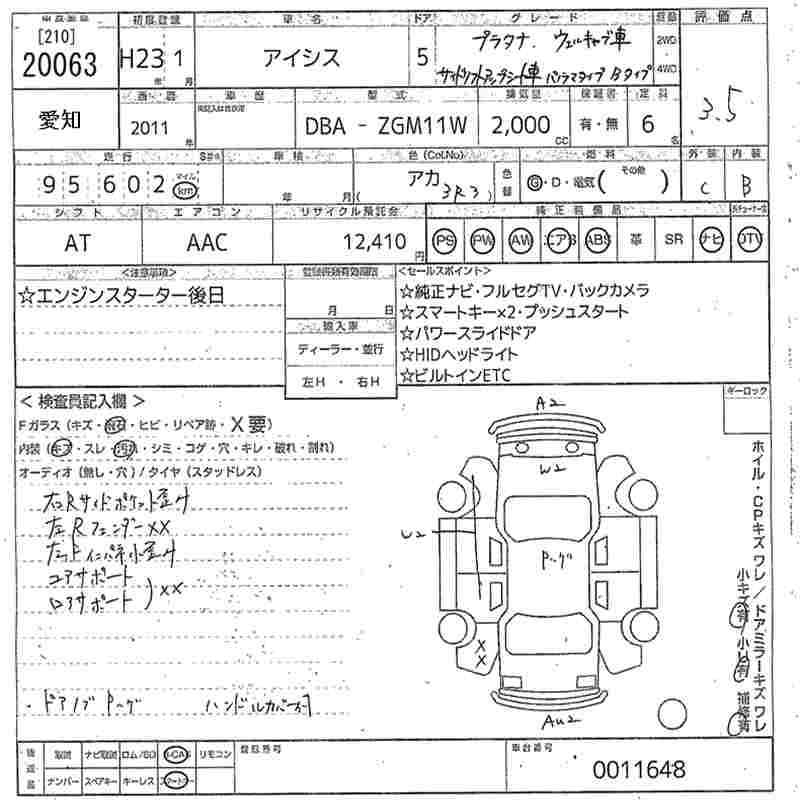 [210]
20063
初度登録
H23 1
年 月
車名
アイシス
ドア
5
グレード
プラタナ ウェルキャブ車
サイドリフトアップシート車 パノラマタイプ Bタイプ
2WD
4WD
評価点
3.5
愛知
2011
年
車歴
型式
DBA - ZGM11W
排気量
2,000
CC
保証書
有・無
定員
6
名
走行
95602
マイル
km
車検
年 月
色(Col.No)
アカ
(3R3)
色替
燃料
G・D・電気( その他 )
外装
C
内装
B
シフト
AT
エアコン
AAC
リサイクル預託金
12,410
円
純正装備品
PS PW AW エアB ABS 革 SR ナビ DTV
<注意事項>
☆エンジンスターター後日
月 日
輸入車
ディーラー・並行
左H ・ 右H
<セールスポイント>
☆純正ナビ・フルセグTV・バックカメラ
☆スマートキー×2・プッシュスタート
☆パワースライドドア
☆HIDヘッドライト
☆ビルトインETC
<検査員記入欄>
Fガラス(キズ・飛石・ヒビ・リペア跡・X要)
内装(キズ・スレ・汚れ・シミ・コゲ・穴・キレ・破れ・割れ)
オーディオ(無し・穴)/タイヤ(スタッドレス)
左Rフェンダーxx
コアサポート
ロアサポート
xx
・ドアノブ Pゲゲ ハンドルカバー付
キーロック
A2
W2
W2
Pゲゲ
X
X
AU2
ホイル・CPキズ ワレ/ドアミラーキズ ワレ
小キズ有/小凹有 補修有
後送品
取説 ナビ取説 ロム/SD B-CAS リモコン
ナンバー スペアキー キーレス スマートキー
登録番号
車台番号
0011648